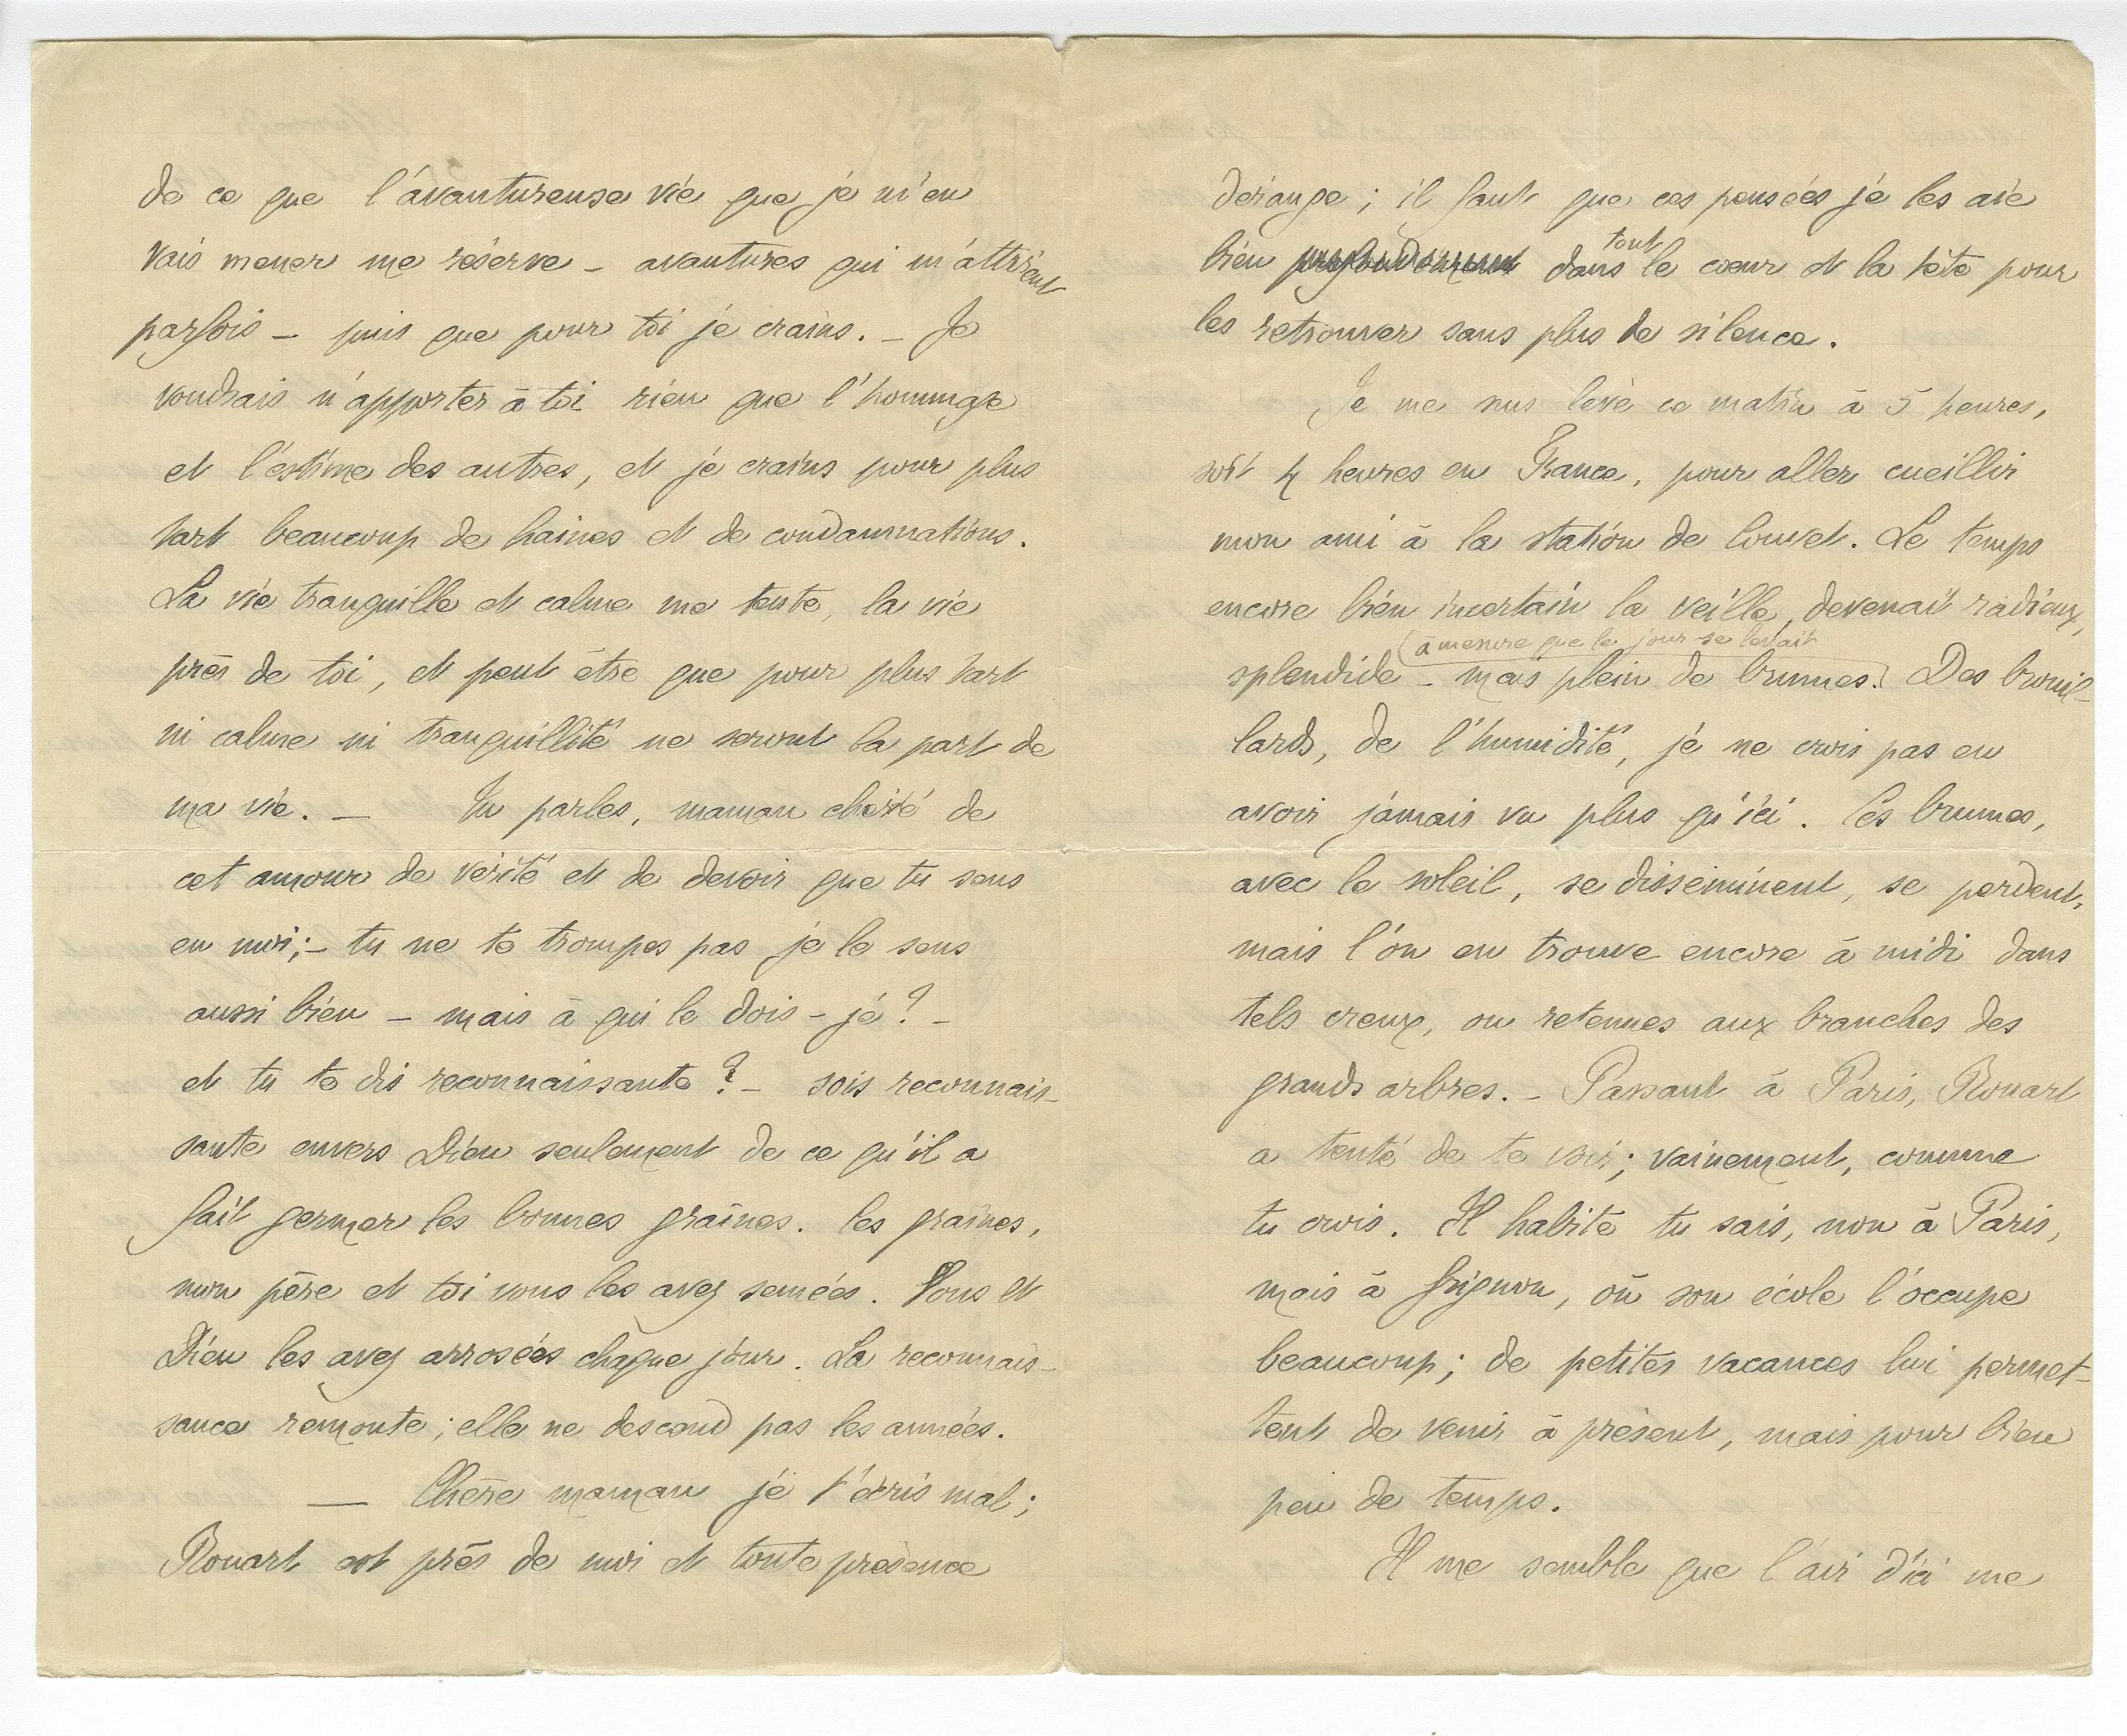 de ce que l'avantureuse vie que je m'en
vais mener me réserve – avantures qui m'attirent
parfois – puis que pour toi je crains. – Je
voudrais n'apporter à toi rien que l'hommage
et l'estime des autres, et je crains pour plus
tart beaucoup de haines et de condamnations.
La vie tranquille et calme me tente, la vie
près de toi, et peut être que pour plus tart
ni calme ni tranquillité ne seront la part de
ma vie. — Tu parles, maman chérie de
cet amour de vérité et de devoir que tu sens
en moi; – tu ne te trompes pas je le sens
aussi bien – mais à qui le dois-je? –
et tu te dis reconnaissante? – sois reconnais-
sante envers Dieu seulement de ce qu'il a
fait germer les bonnes graines. Les graines,
mon père et toi vous les avez semées. Vous et
Dieu les avez arrosées chaque jour. La reconnais-
sance remonte; elle ne descend pas les années.
— Chère maman je t'écris mal;
Rouart est près de moi et toute présence
dérange; il faut que ces pensées je les aie
bien profondément dans tout le cœur et la tête pour
les retrouver sans plus de silence.
Je me suis levé ce matin à 5 heures,
soit 4 heures en France, pour aller cueillir
mon ami à la station de Couvet. Le temps
encore bien incertain la veille, devenait radieux,
à mesure que le jour se levait
splendide – mais plein de brumes. Des brouil-
lards, de l'humidité, je ne crois pas en
avoir jamais vu plus qu'ici. Ces brumes,
avec le soleil, se disséminent, se perdent,
mais l'on en trouve encore à midi dans
tels creux, ou retenues aux branches des
grands arbres. – Passant à Paris, Rouart
a tenté de te voir; vainement, comme
tu crois. Il habite tu sais, non à Paris,
mais à Grignon, où son école l'occupe
beaucoup; de petites vacances lui permet-
tent de venir à présent, mais pour bien
peu de temps.
Il me semble que l'air d'ici me